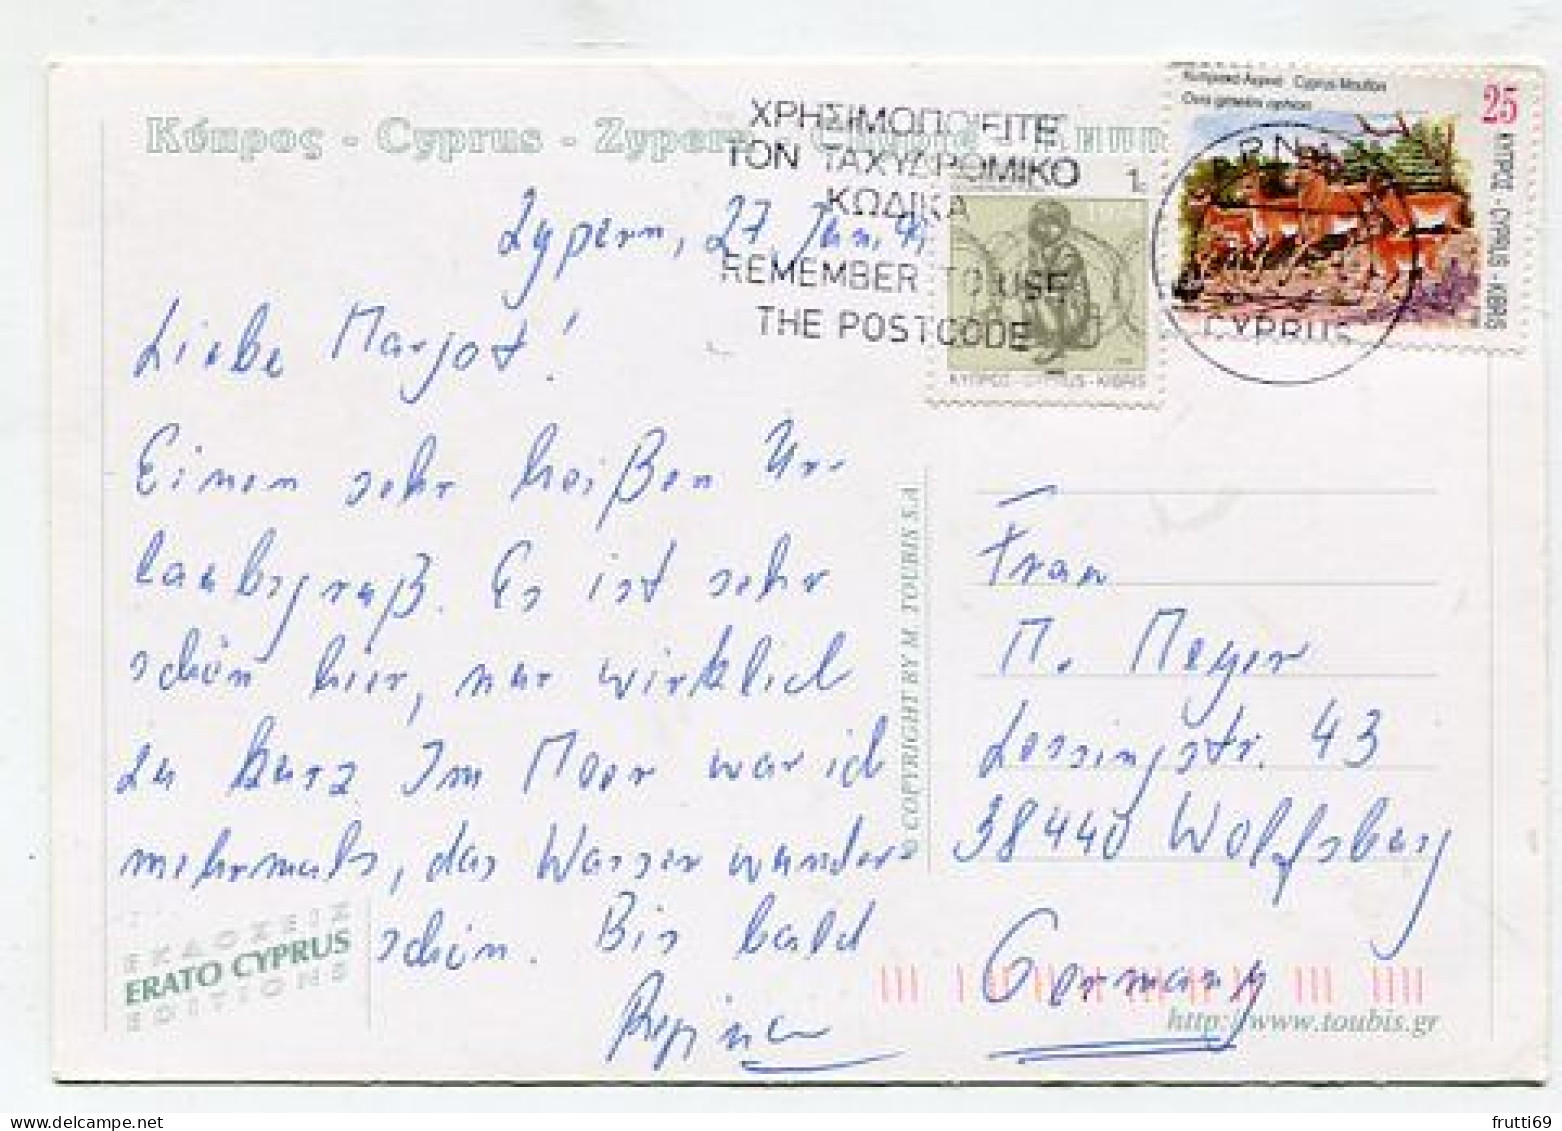 Κύπρος - Cyprus - Zypern
ΧΡΗΣΙΜΟΠΟΙΕΙΤΕ
ΤΟΝ ΤΑΧΥΔΡΟΜΙΚΟ
ΚΩΔΙΚΑ
REMEMBER TO USE
THE POSTCODE
1
ΚΥΠΡΟΣ - CYPRUS - KIBRIS
Κυπριακό Αγρινό Cyprus Moufflon
Ovis gmelini ophion
25
ΚΥΠΡΟΣ - CYPRUS - KIBRIS
CYPRUS
Zypern, 27. Jun.
Liebe Margot!
Einen sehr heißen Ur-
laubsgruß. Es ist sehr
schön hier, nur wirklich
zu kurz. Im Meer war ich
mehrmals, das Wasser wunder
schön. Bis bald
Regina
© COPYRIGHT BY M. TOUBIS S.A
Frau
M. Meyer
Lessingstr. 43
38440 Wolfsburg
Germany
ΕΚΔΟΣΕΙΣ
ERATO CYPRUS
EDITIONS
http://www.toubis.gr
www.delcampe.net
frutti69